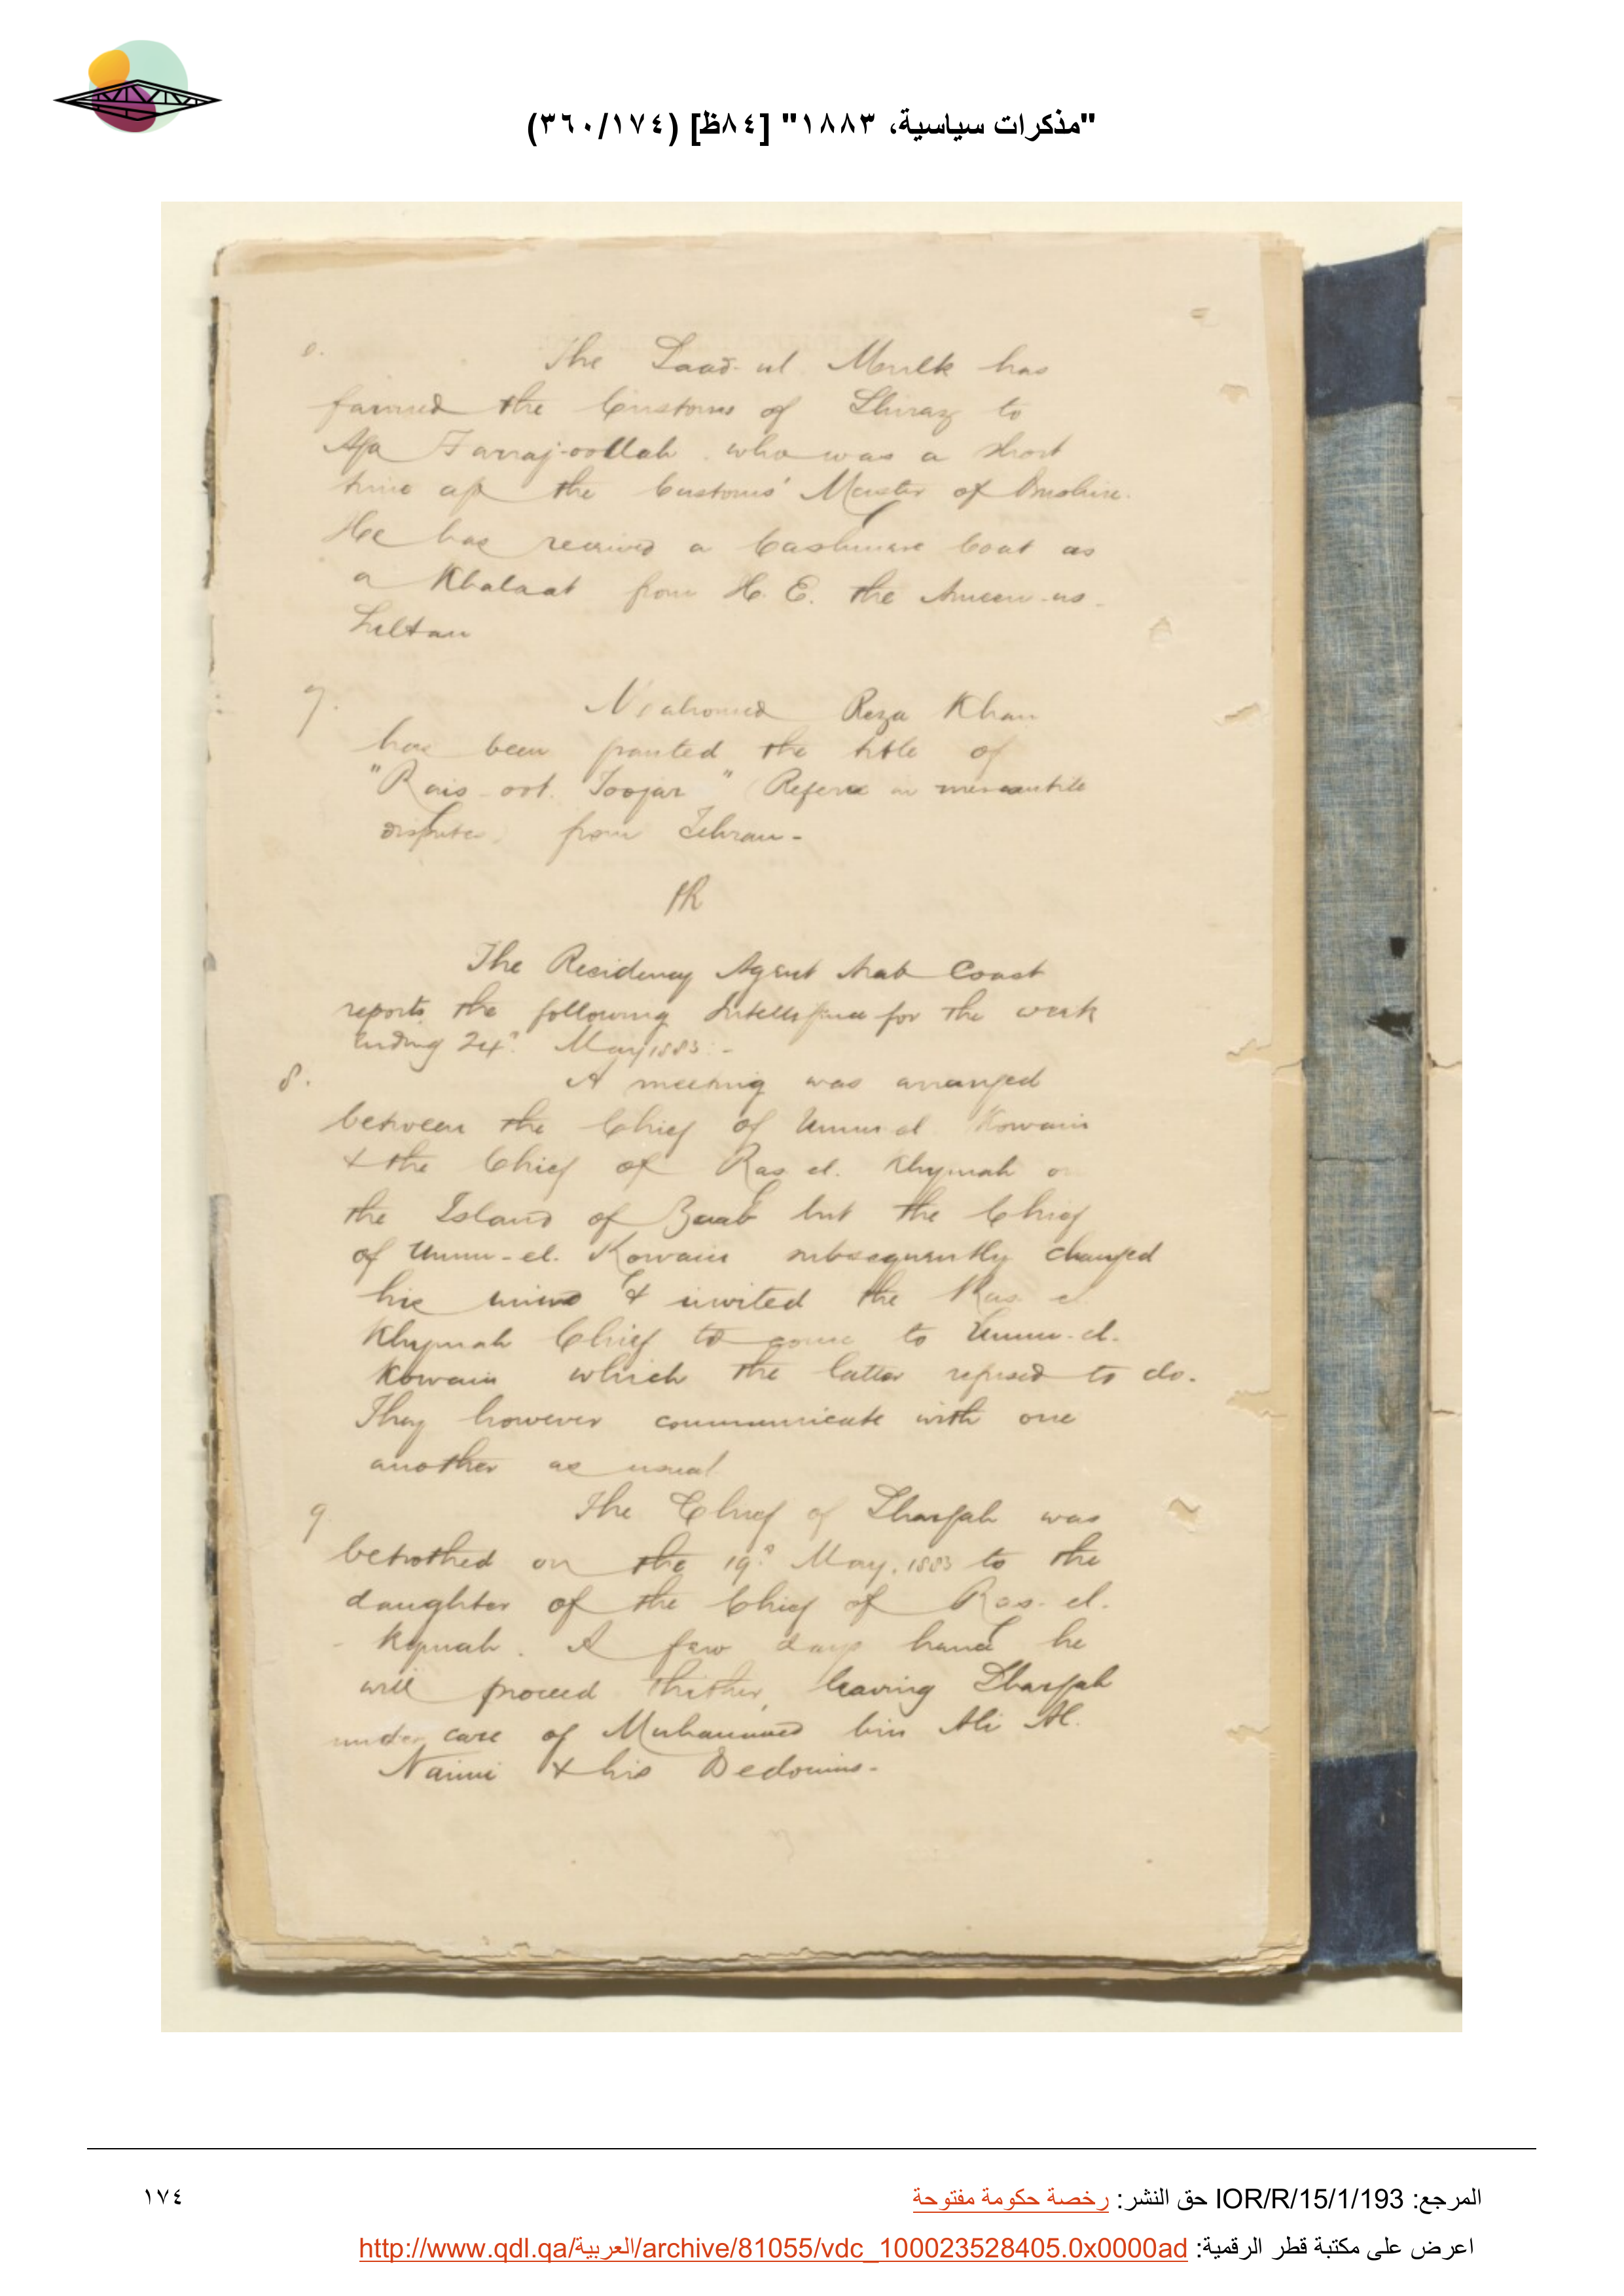 "مذكرات سياسية، ١٨٨٣" [٨٤ظ] (٣٦٠/١٧٤)
The Saad-ul Mulk has
farmed the Customs of Shiraz to
Aga Farraj-oollah who was a short
time ago the Customs' Master of Bushire.
He has received a Cashmere Coat as
a Khalaat from H. E. the Ameen-us-
Sultan
7. Mahomed Reza Khan
has been granted the title of
"Rais-oot Toojar" (Referee in mercantile
disputes) from Tehran -
The Residency Agent Arab Coast
reports the following Intelligence for the week
ending 24th May 1883:-
8. A meeting was arranged
between the Chief of Umm-el Kowain
& the Chief of Ras el. Khymah on
the Island of Zaab but the Chief
of Umm-el. Kowain subsequently changed
his mind & invited the Ras el
Khymah Chief to come to Umm-el-
Kowain which the latter refused to do.
They however communicate with one
another as usual
9 The Chief of Shargah was
betrothed on the 19th May, 1883 to the
daughter of the Chief of Ras-el-
Kymah. A few days hence he
will proceed thither, leaving Shargah
under care of Muhammed bin Ali Al.
Naimi & his Bedouins-
المرجع: IOR/R/15/1/193 حق النشر: رخصة حكومة مفتوحة
١٧٤
اعرض على مكتبة قطر الرقمية: http://www.qdl.qa/العربية/archive/81055/vdc_100023528405.0x0000ad